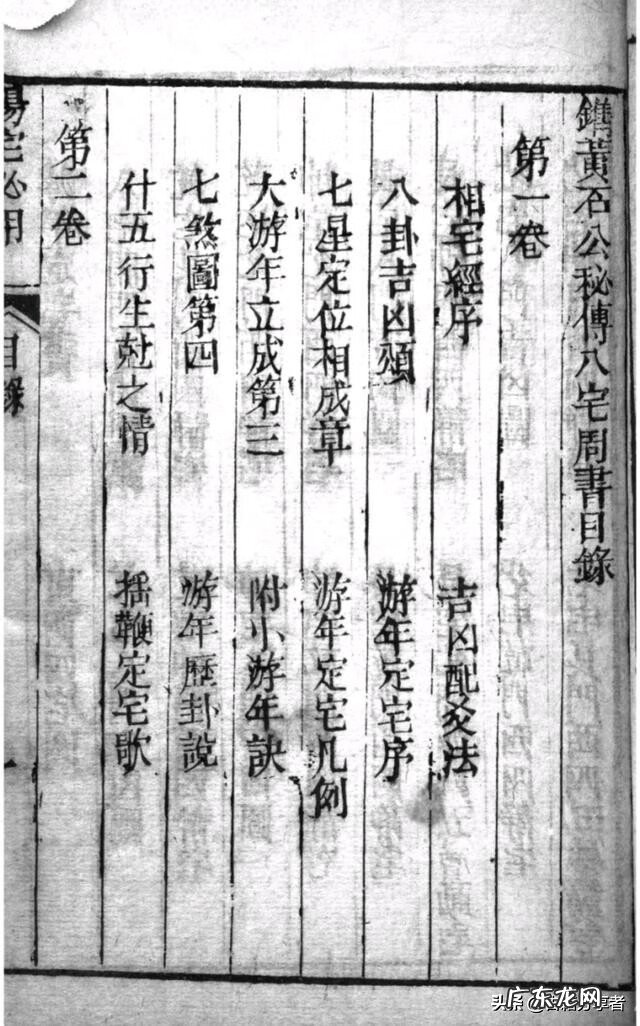 鐫黃石公秘傳八宅周書目錄
第一卷
相宅經序
吉凶配爻法
八卦吉凶頌
游年定宅序
七星定位相成章
游年定宅凡例
大游年立成第三
附小游年訣
七煞圖第四
游年歷卦說
什五行生尅之情
揺鞭定宅歌
第二卷
陽宅必用
目錄
头条
享者
广东龙网